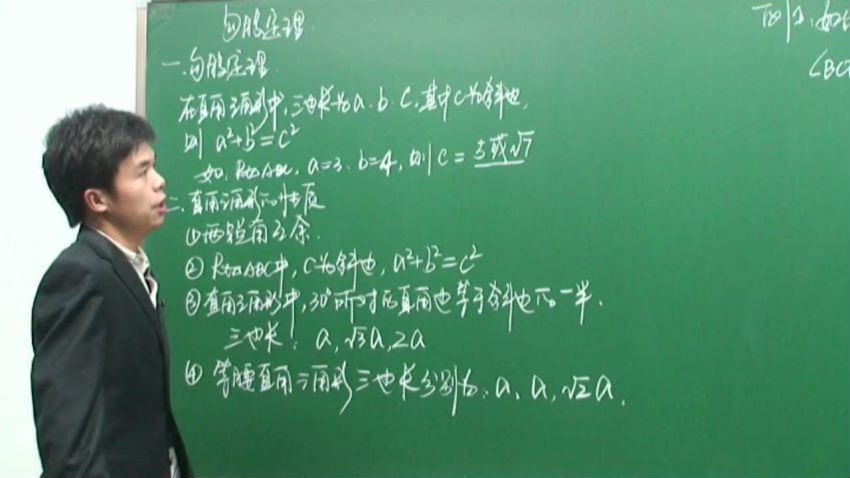 勾股定理
一.勾股定理.
在直角三角形中,三边长为a.b.c,其中c为斜边,
则 a²+b²=c²
如.Rt△ABC, a=3. b=4, 则 c = 5或√7
二.直角三角形的性质
①两锐角互余.
② Rt△ABC中, C为斜边, a²+b²=c²
③直角三角形中,30°所对的直角边等于斜边的一半.
三边长: a,√3a,2a
④ 等腰直角三角形三边长分别为: a, a, √2a.
例1.如
∠BC